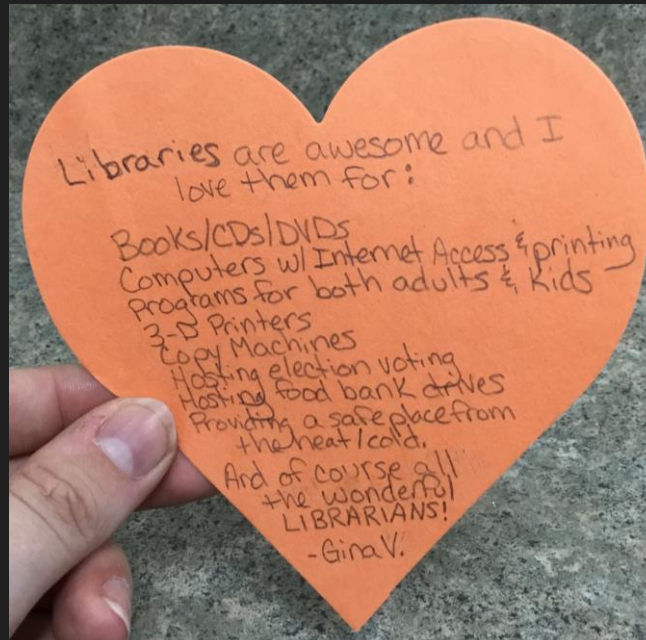 Libraries are awesome and I
love them for:
Books/CDs/DVDs
Computers w/ Internet Access & printing
Programs for both adults & Kids
3-D Printers
Copy Machines
Hosting election voting
Hosting food bank drives
Providing a safe place from
the heat/cold.
And of course all
the wonderful
LIBRARIANS!
-Gina V.